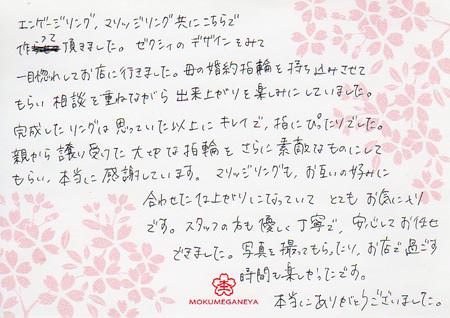 エンゲージリング、マリッジリング共にこちらで
作って頂きました。ゼクシィのデザインをみて
一目惚れしてお店に行きました。母の婚約指輪を持ち込みさせて
もらい相談を重ねながら出来上がりを楽しみにしていました。
完成したリングは思っていた以上にキレイで、指にぴったりでした。
親から譲り受けた大切な指輪をさらに素敵なものにして
もらい、本当に感謝しています。マリッジリングも、お互いの好みに
合わせた仕上がりになっていてとてもお気に入り
です。スタッフの方も優しく丁寧で、安心してお任せ
できました。写真を撮ってもらったり、お店で過ごす
時間も楽しかったです。
本当にありがとうございました。
MOKUMEGANEYA